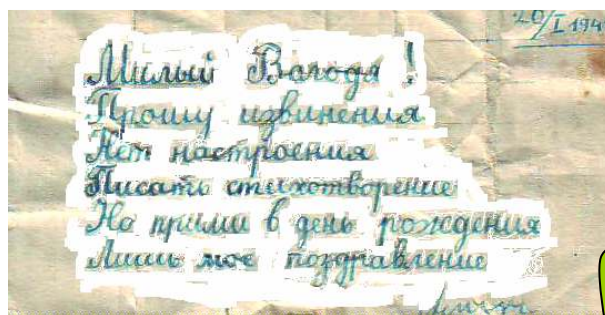 20/I 194
Милый Вагодя!
Прошу извинения
Нет настроения
Писать стихотворение
Но прими в день рождения
Лишь мое поздравление